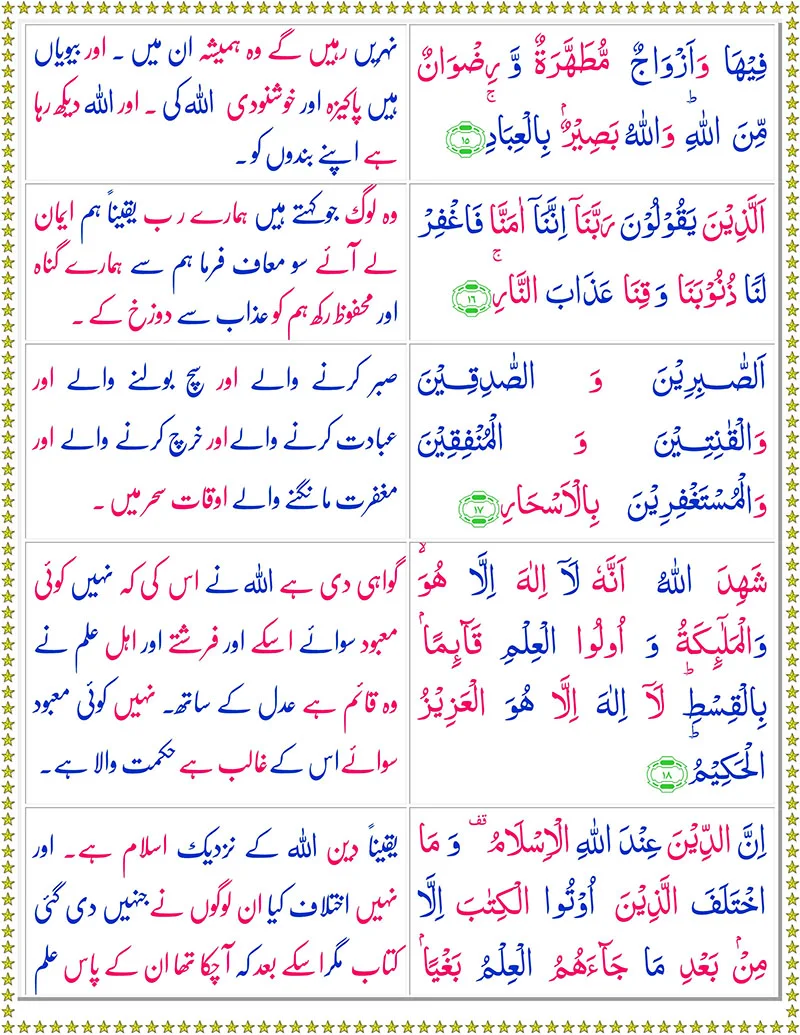 فِيْهَا وَاَزْوَاجٌ مُّطَهَّرَةٌ وَّ رِضْوَانٌ
مِّنَ اللّٰهِؕ وَاللّٰهُ بَصِيْرٌۢ بِالْعِبَادِۚ ۝۱۵
نہریں رہیں گے وہ ہمیشہ ان میں ۔ اور بیویاں
ہیں پاکیزہ اور خوشنودی اللہ کی ۔ اور اللہ دیکھ رہا
ہے اپنے بندوں کو ۔
اَلَّذِيْنَ يَقُوْلُوْنَ رَبَّنَاۤ اِنَّنَاۤ اٰمَنَّا فَاغْفِرْ
لَنَا ذُنُوْبَنَا وَقِنَا عَذَابَ النَّارِۚ ۝۱۶
وہ لوگ جو کہتے ہیں ہمارے رب یقیناً ہم ایمان
لے آئے سو معاف فرما ہم سے ہمارے گناہ
اور محفوظ رکھ ہم کو عذاب سے دوزخ کے ۔
اَلصّٰبِرِيْنَ وَ الصّٰدِقِيْنَ
وَالْقٰنِتِيْنَ وَ الْمُنْفِقِيْنَ
وَالْمُسْتَغْفِرِيْنَ بِالْاَسْحَارِ ۝۱۷
صبر کرنے والے اور سچ بولنے والے اور
عبادت کرنے والے اور خرچ کرنے والے اور
مغفرت مانگنے والے اوقات سحر میں ۔
شَهِدَ اللّٰهُ اَنَّهٗ لَاۤ اِلٰهَ اِلَّا هُوَۙ
وَالْمَلٰٓئِكَةُ وَ اُولُوا الْعِلْمِ قَآئِمًاۢ
بِالْقِسْطِؕ لَاۤ اِلٰهَ اِلَّا هُوَ الْعَزِيْزُ
الْحَكِيْمُؕ ۝۱۸
گواہی دی ہے اللہ نے اس کی کہ نہیں کوئی
معبود سوائے اسکے اور فرشتے اور اہل علم نے
وہ قائم ہے عدل کے ساتھ۔ نہیں کوئی معبود
سوائے اس کے غالب ہے حکمت والا ہے۔
اِنَّ الدِّيْنَ عِنْدَ اللّٰهِ الْاِسْلَامُ قف وَ مَا
اخْتَلَفَ الَّذِيْنَ اُوْتُوا الْكِتٰبَ اِلَّا
مِنْۢ بَعْدِ مَا جَآءَهُمُ الْعِلْمُ بَغْيًاۢ
یقیناً دین اللہ کے نزدیک اسلام ہے۔ اور
نہیں اختلاف کیا ان لوگوں نے جنہیں دی گئی
کتاب مگر اسکے بعد کہ آ چکا تھا ان کے پاس علم